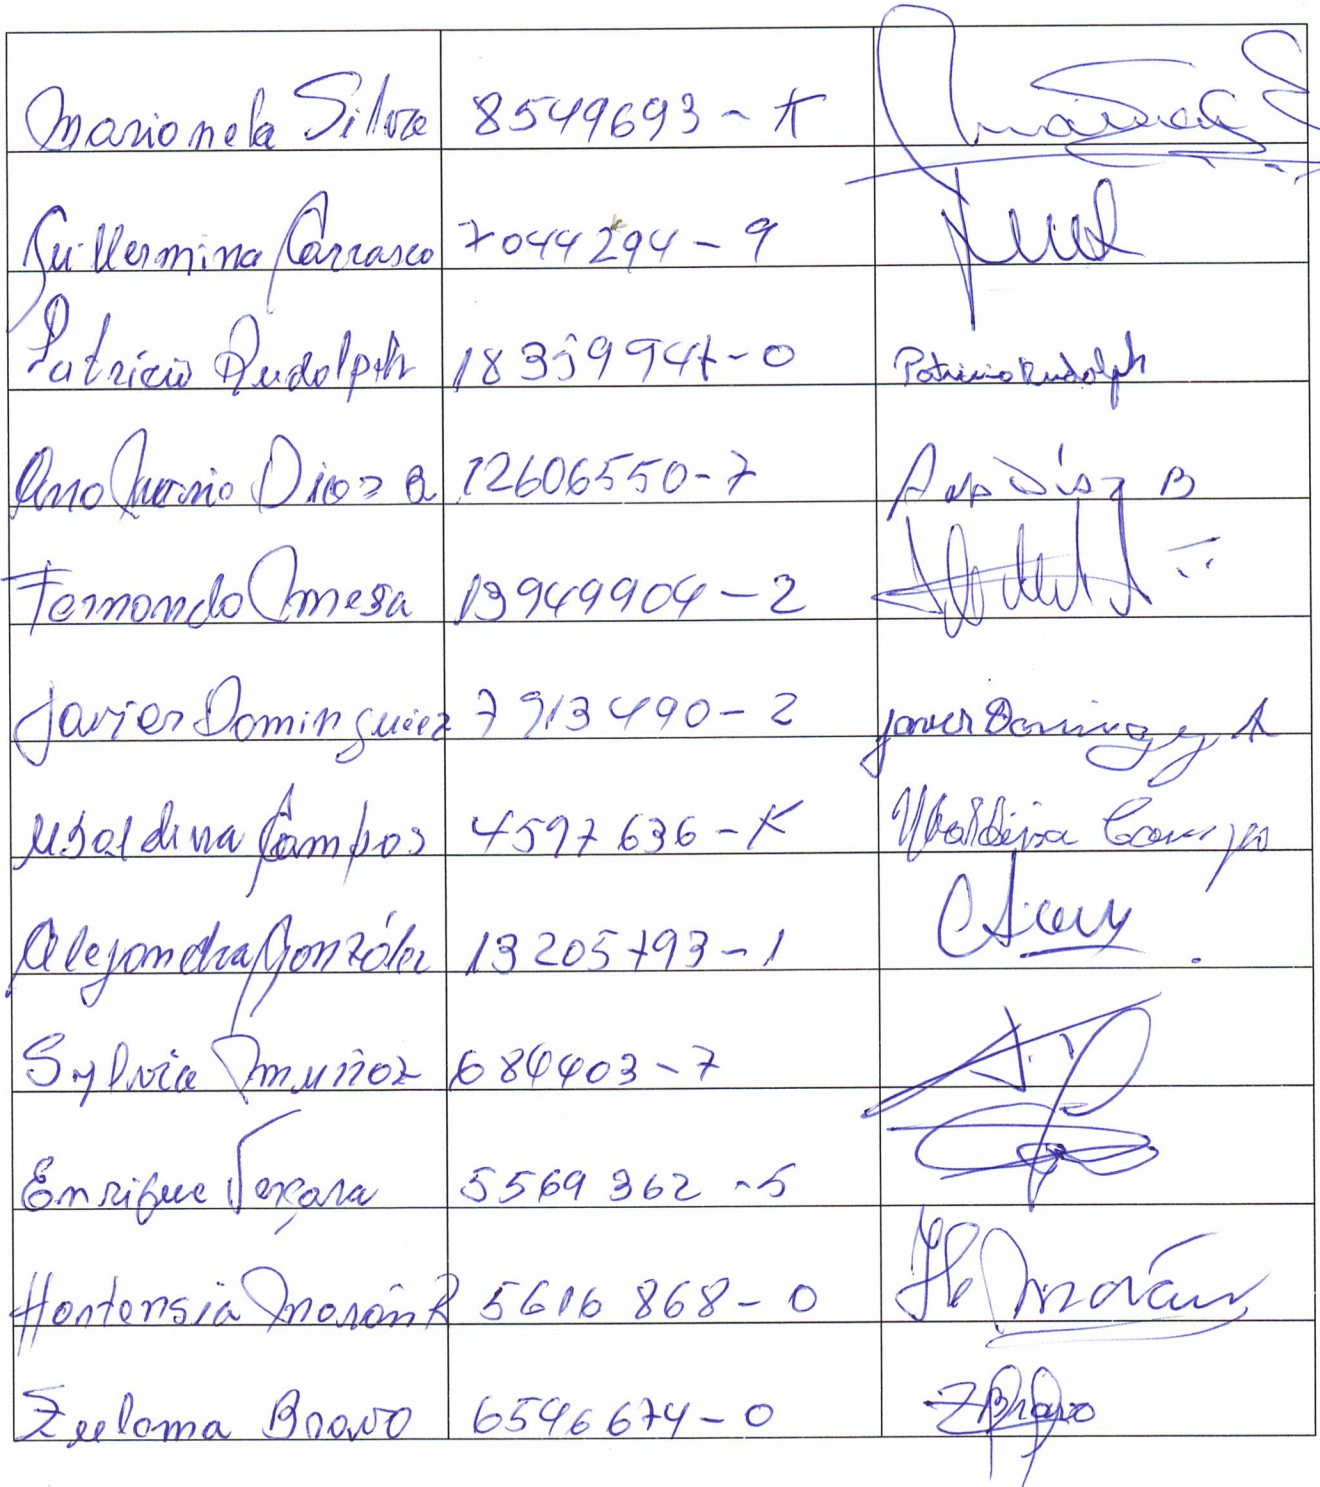 Marionela Silva 8549693-K
Guillermina Carrasco 7044294-9
Patricio Rudolph 18359947-0 Patricio Rudolph
Ana Maria Dias B 12606550-7 Ana Díaz B
Fernando Mesa 13949904-2
Javier Dominguez 7913490-2 Javier Dominguez A
Ubaldina Campos 4597636-K Ubaldina Campos
Alejandra González 13205793-1
Sylvia Muñoz 684403-7
Enrique Vergara 5569362-5
Hortensia Morán R 5616868-0 H Morán
Zuloma Bravo 6546674-0 Z Bravo